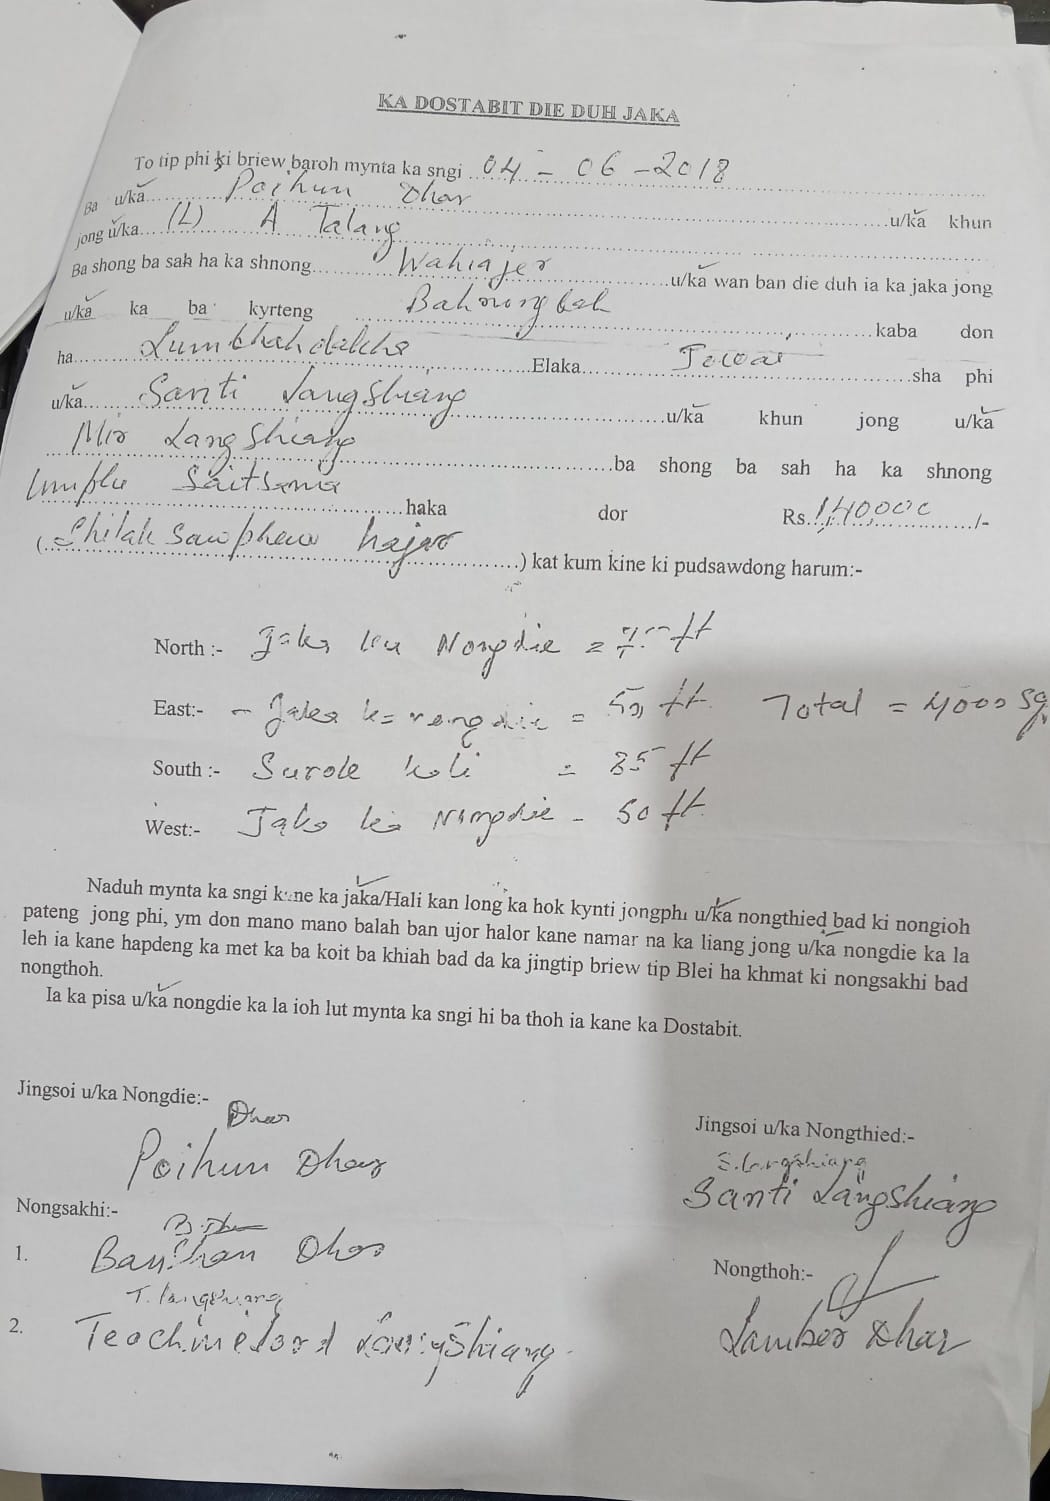 KA DOSTABIT DIE DUH JAKA
To tip phi ki briew baroh mynta ka sngi 04 - 06 - 2018
Ba u/ka Poihun Dhar u/ka khun
jong u/ka (L) A Talang
Ba shong ba sah ha ka shnong Wahiajer u/ka wan ban die duh ia ka jaka jong
u/ka ka ba kyrteng kaba don
ha Elaka Jowai sha phi
u/ka Santi Langshiang u/ka khun jong u/ka
Mir Langshiang ba shong ba sah ha ka shnong
Saitsama haka dor Rs. 1,40,000 /-
( Shilak sawphew hajar ) kat kum kine ki pudsawdong harum:-
North :- Jaka ka Nongdie = ft
East:- - Jaka ka nongdie = 50 ft Total = 4000 Sq
South :- Surok koli = 85 ft
West:- Jaka ka Nongdie - 50 ft
Naduh mynta ka sngi kane ka jaka/Hali kan long ka hok kynti jongphi u/ka nongthied bad ki nongioh
pateng jong phi, ym don mano mano balah ban ujor halor kane namar na ka liang jong u/ka nongdie ka la
leh ia kane hapdeng ka met ka ba koit ba khiah bad da ka jingtip briew tip Blei ha khmat ki nongsakhi bad
nongthoh.
Ia ka pisa u/ka nongdie ka la ioh lut mynta ka sngi hi ba thoh ia kane ka Dostabit.
Jingsoi u/ka Nongdie:-
Dhar
Poihun Dhar
Jingsoi u/ka Nongthied:-
S. Langshiang
Santi Langshiang
Nongsakhi:-
1. Banshan Dhar
T. Langshiang
2. Teachmelord Langshiang
Nongthoh:-
Lamber Dhar